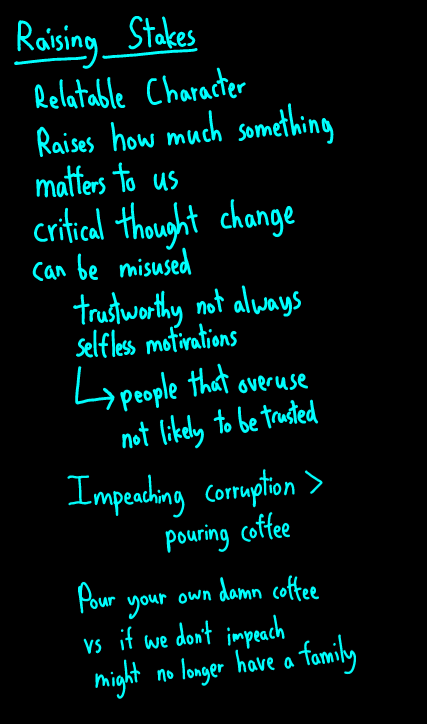 Raising Stakes
Relatable Character
Raises how much something
matters to us
critical thought change
can be misused
trustworthy not always
selfless motivations
→ people that overuse
not likely to be trusted
Impeaching corruption >
pouring coffee
Pour your own damn coffee
vs if we don't impeach
might no longer have a family